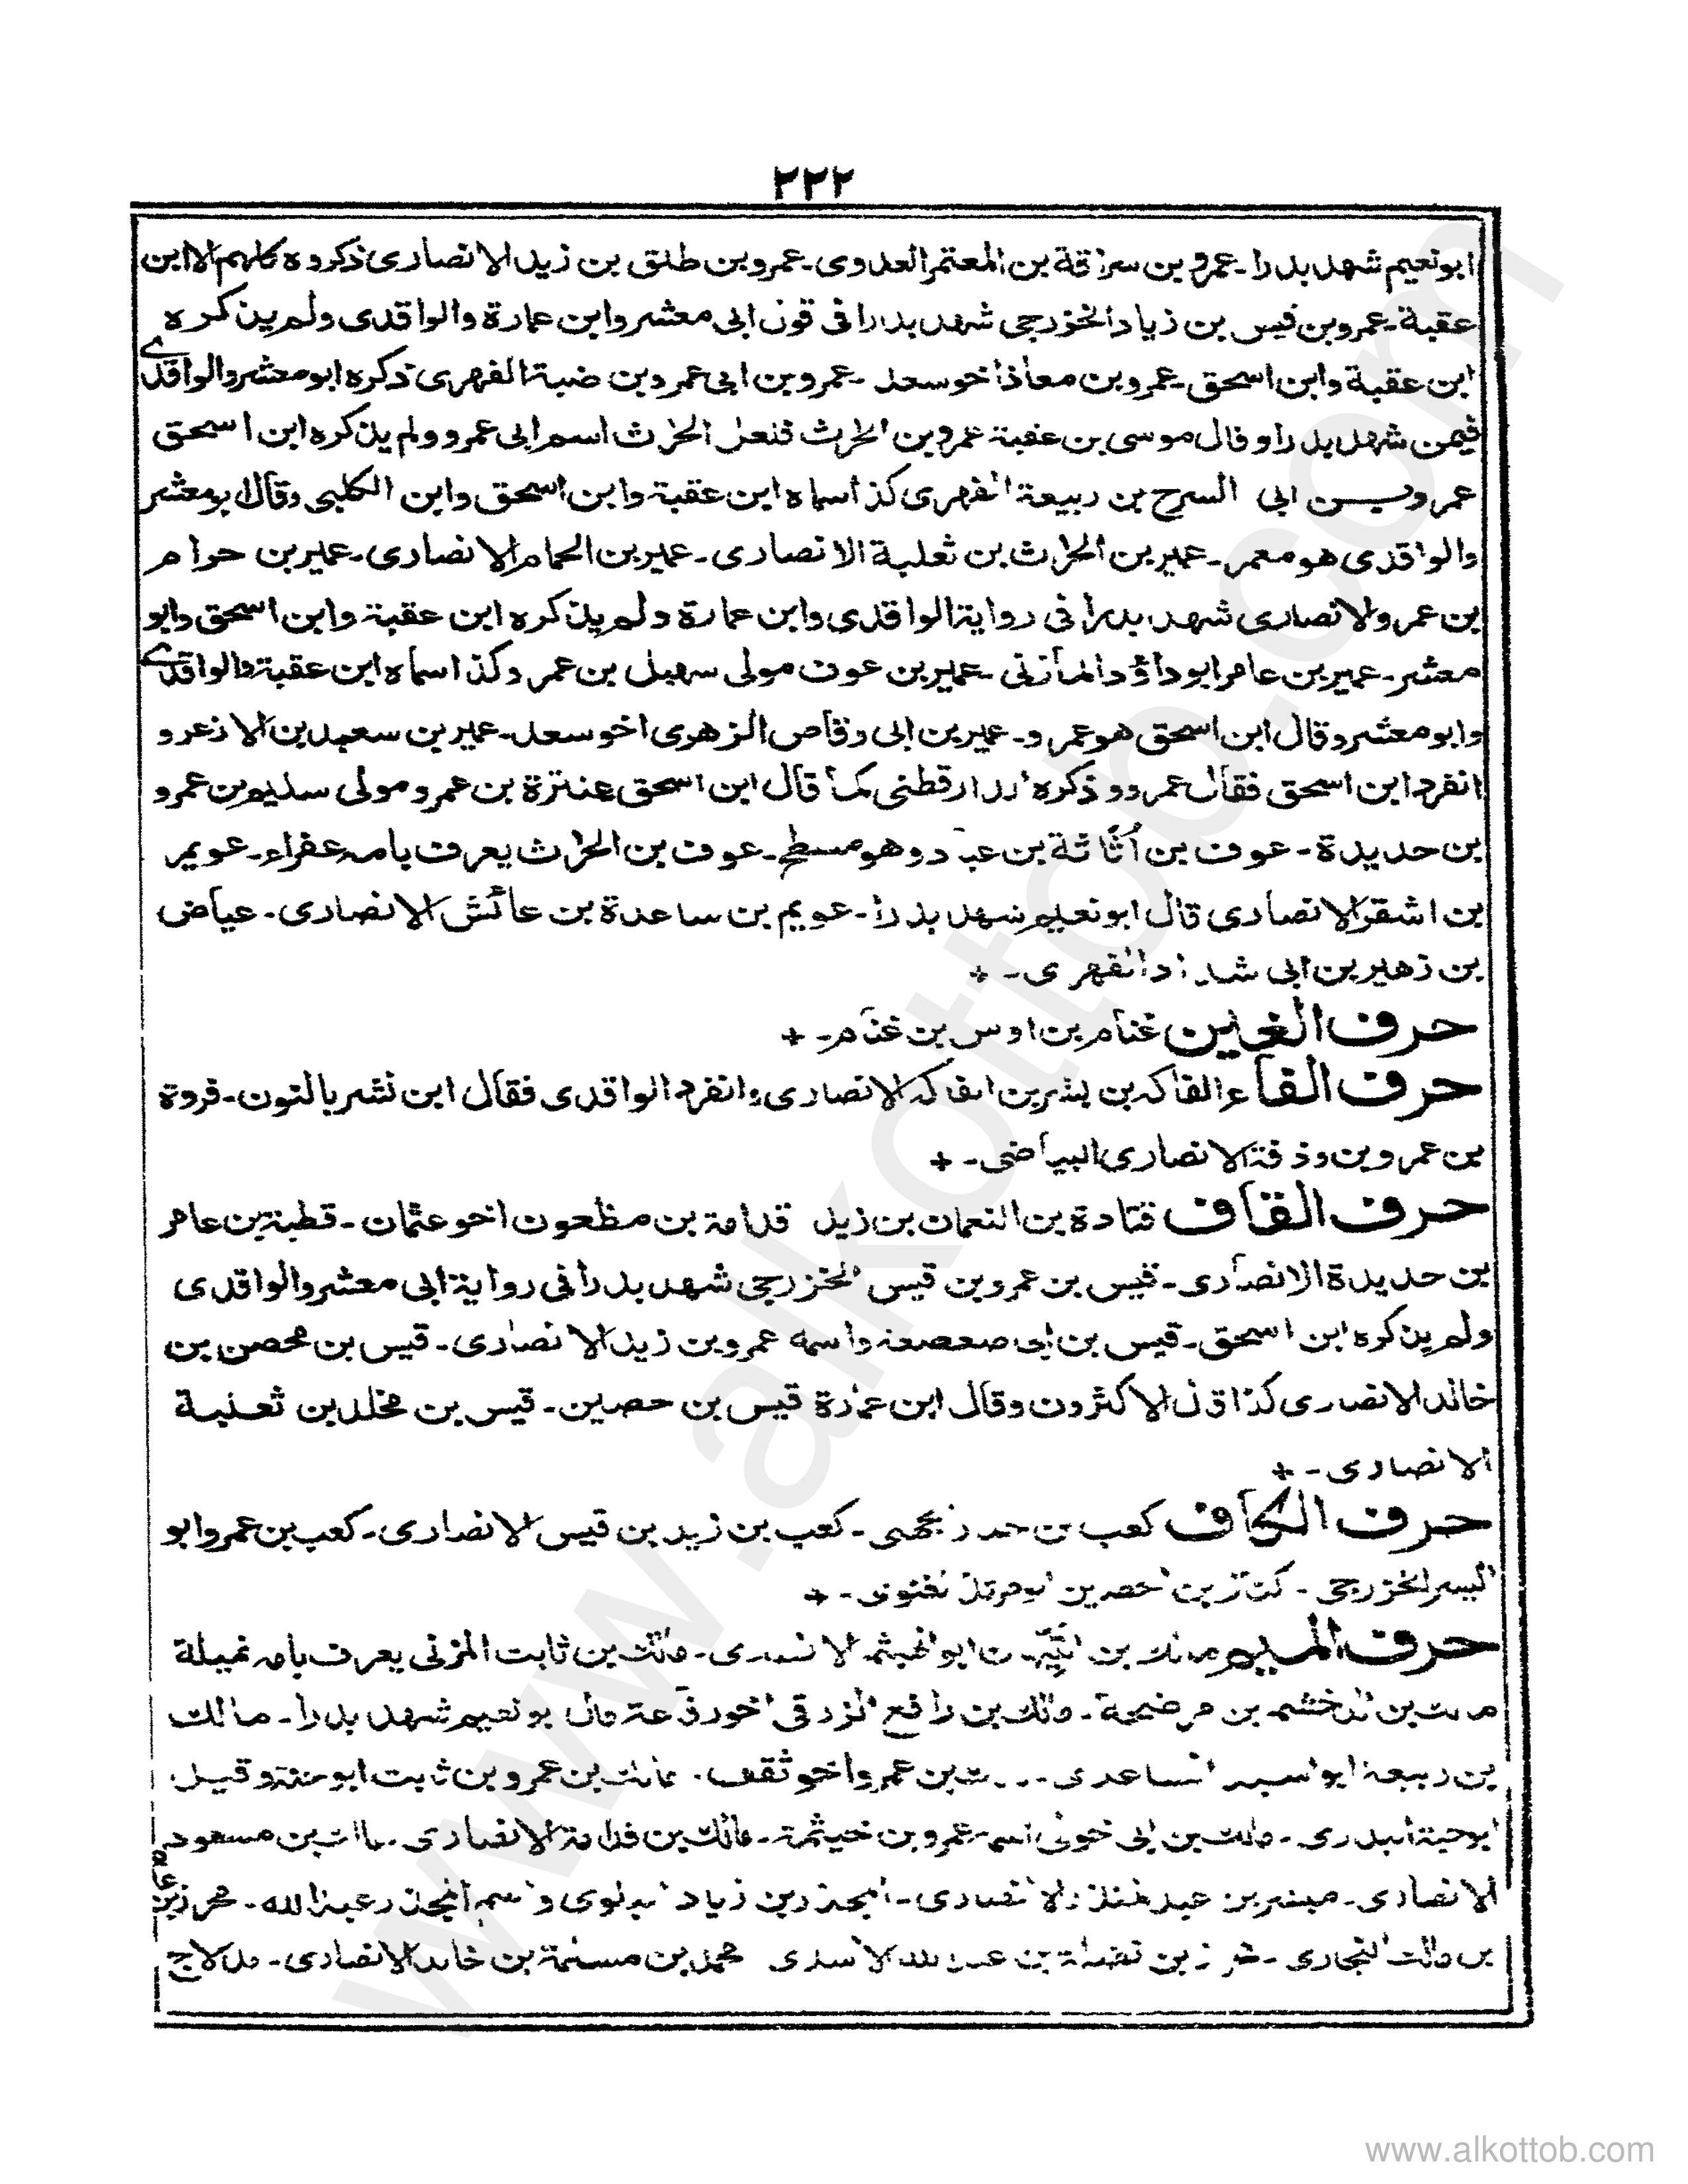 ٢٢٢
ابو نعيم شهد بدرا۔ عمرو بن سراقة بن المعتمر العدوى۔ عمرو بن طلق بن زيد الانصارى ذكروه كلهم الا ابن
عقبة۔ عمرو بن قيس بن زياد الخزرجى شهد بدرا فى قول ابى معشر وابن عمارة والواقدى ولم يذكره
ابن عقبة وابن اسحق۔ عمرو بن معاذ اخو سعد۔ عمرو بن ابى عمرو بن ضبة الفهرى ذكره ابو معشر والواقدے
فيمن شهد بدرا وقال موسى بن عقبة عمرو بن الحرث فلعل الحرث اسم ابى عمرو ولم يذكره ابن اسحق
عمرو بن ابى السرح بن ربيعة الفهرى كذا سماه ابن عقبة وابن اسحق وابن الكلبى وقال ابو معشر
والواقدى هو معمر۔ عمير بن الحرث بن ثعلبة الانصارى۔ عمير بن الحمام الانصارى۔ عمير بن حرام
بن عمرو الانصارى شهد بدرا فى رواية الواقدى وابن عمارة ولم يذكره ابن عقبة وابن اسحق وابو
معشر۔ عمير بن عامر ابو داؤد المازنى۔ عمير بن عوف مولى سهيل بن عمر وكذا سماه ابن عقبة والواقدے
وابو معشر وقال ابن اسحق هو عمرو۔ عمير بن ابى وقاص الزهرى اخو سعد۔ عمير بن سعيد بن الازعر و
انفرد ابن اسحق فقال عمرو وذكره الدارقطنى كما قال ابن اسحق عنترة بن عمرو مولى سليم بن عمرو
بن حديدة۔ عوف بن أثاثة بن عباد وهو مسطح۔ عوف بن الحرث يعرف بامه عفراء۔ عويمر
بن اشقر الانصارى قال ابو نعيم شهد بدرا۔ عويم بن ساعدة بن عائش الانصارى۔ عياض
بن زهير بن ابى شداد الفهرى۔ +
حرف الغين غنام بن اوس بن غنام۔ +
حرف الفاء الفاكه بن بشر بن الفاكه الانصارى وانفرد الواقدى فقال ابن نشر بالنون۔ فروة
بن عمرو بن وذفة الانصارى البياضى۔ +
حرف القاف قتادة بن النعمان بن زيد قدامة بن مظعون اخو عثمان۔ قطبة بن عامر
بن حديدة الانصارى۔ قيس بن عمرو بن قيس الخزرجى شهد بدرا فى رواية ابى معشر والواقدى
ولم يذكره ابن اسحق۔ قيس بن ابى صعصعة واسمه عمرو بن زيد الانصارى۔ قيس بن محصن بن
خالد الانصارى كذا قال الاكثرون وقال ابن عمارة قيس بن حصين۔ قيس بن مخلد بن ثعلبة
الانصارى۔ +
حرف الكاف كعب بن جهنى۔ كعب بن زيد بن قيس الانصارى۔ كعب بن عمرو ابو
اليسر الخزرجى۔ كناز بن الحصين ابو مرثد الغنوى۔ +
حرف الميم مالك بن التيهان ابو الهيثم الانصارى۔ مالك بن ثابت المزنى يعرف بامه نميلة
مالك بن الدخشم بن مرضخة۔ مالك بن رافع الزرقى اخو رفاعة قال ابو نعيم شهد بدرا۔ مالك
بن ربيعة ابو اسيد الساعدى۔ مالك بن عمرو اخو ثقف۔ مالك بن عمرو بن ثابت ابو حنة وقيل
ابو حبة البدرى۔ مالك بن ابى خولى اسمه عمرو بن خيثمة۔ مالك بن قدامة الانصارى۔ مالك بن مسعود
الانصارى۔ مبشر بن عبد المنذر الانصارى۔ المجذر بن زياد البلوى واسم المجذر عبد الله۔ محرز بن عامر
بن مالك النجارى۔ محرز بن نضلة بن عبد الله الاسدى محمد بن مسلمة بن خالد الانصارى۔ مدلاج
www.alkottob.com
www.alkottob.com